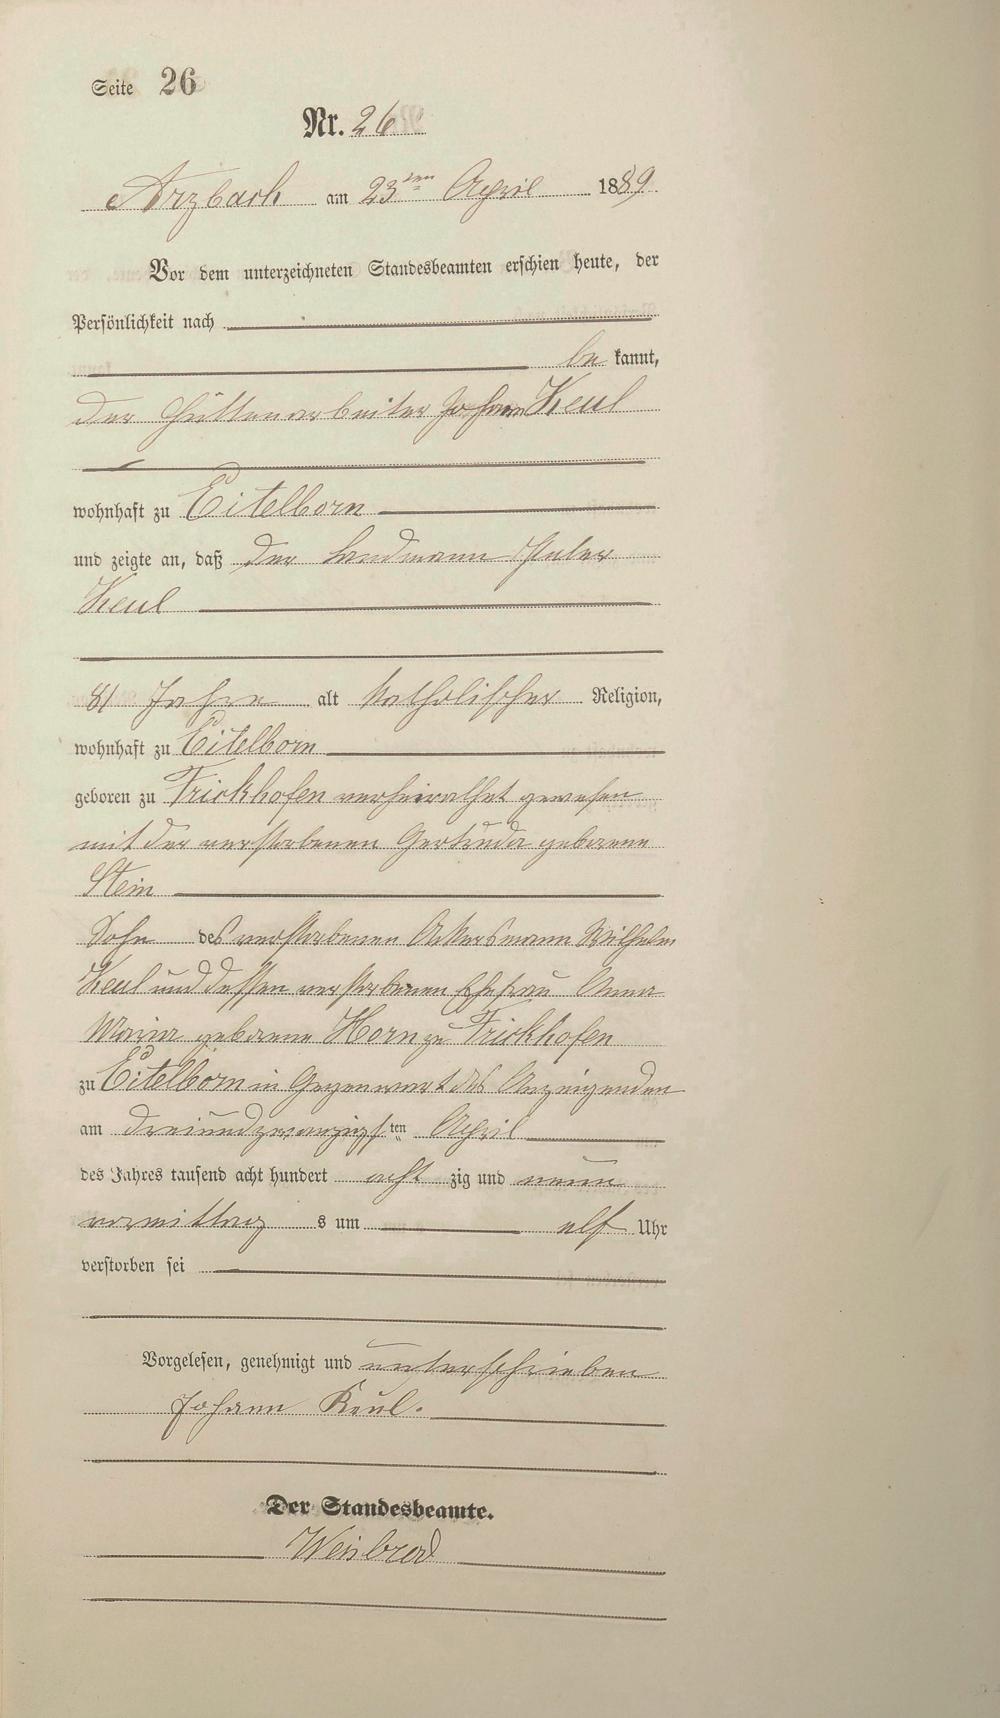 Seite 26
Nr. 26
Arzbach am 23ten April 1889
Vor dem unterzeichneten Standesbeamten erschien heute, der
Persönlichkeit nach
be kannt,
der Hüttenarbeiter Johann Keul
wohnhaft zu Eitelborn
und zeigte an, daß der Landmann Peter
Keul
81 Jahre alt katholischer Religion,
wohnhaft zu Eitelborn
geboren zu Frickhofen verheirathet gewesen
mit der verstorbenen Gertruda geborene
Stein
Sohn des verstorbenen Ackersmann Wilhelm
Keul und dessen verstorbenen Ehefrau Anna
Maria geborene Horn zu Frickhofen
zu Eitelborn in Gegenwart des Anzeigenden
am dreiundzwanzigsten April
des Jahres tausend acht hundert acht zig und neun
vormittag s um elf Uhr
verstorben sei
Vorgelesen, genehmigt und unterschrieben
Johann Keul.
Der Standesbeamte.
Weisbrod